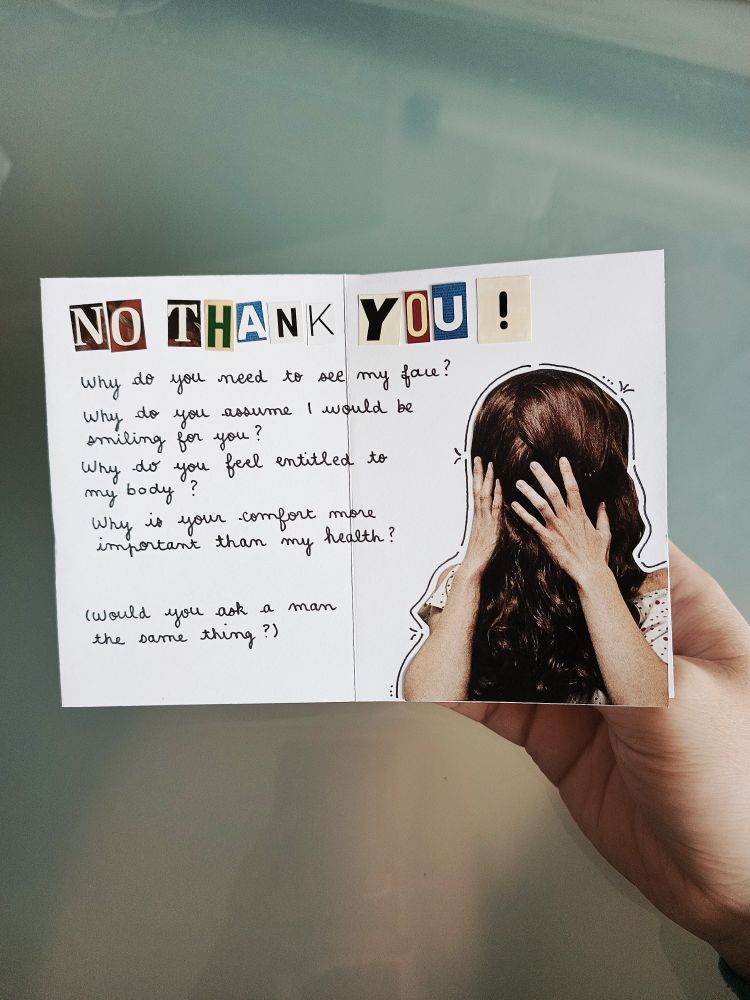 NO THANK YOU!
Why do you need to see my face?
Why do you assume I would be
smiling for you?
Why do you feel entitled to
my body ?
Why is your comfort more
important than my health?
(Would you ask a man
the same thing?)